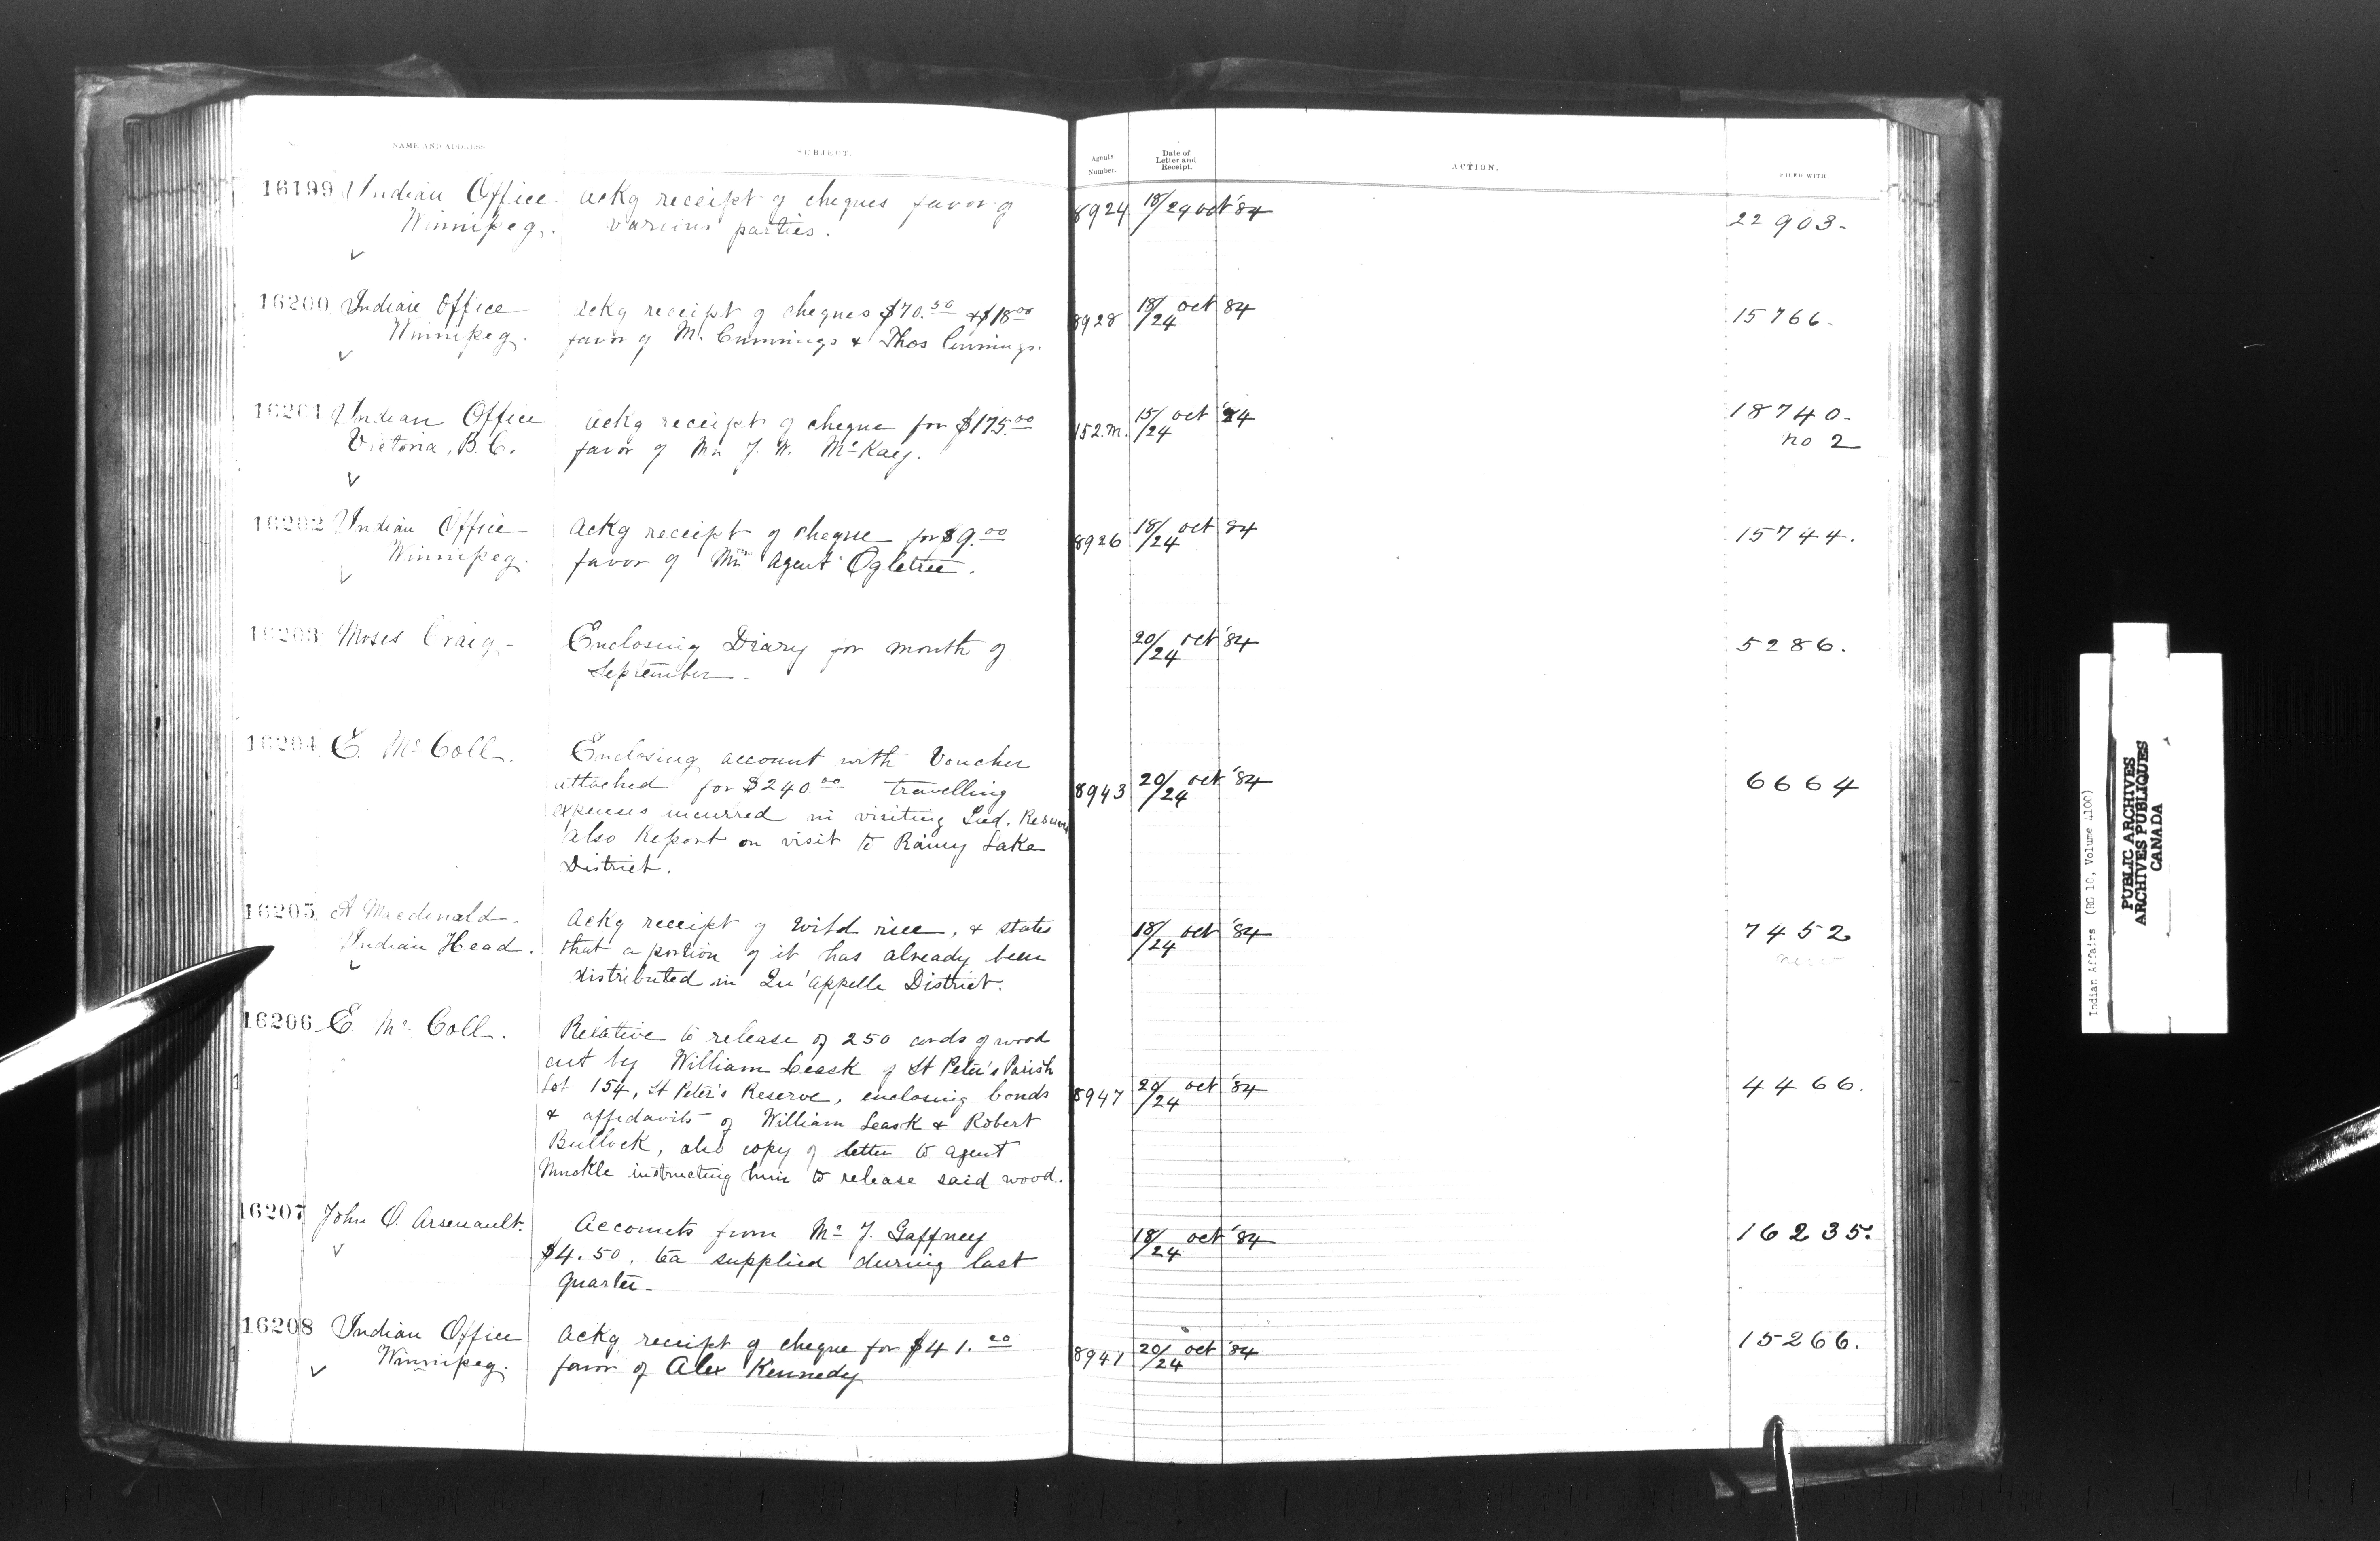 NAME AND ADDRESS.
SUBJECT.
Agents Number.
Date of Letter and Receipt.
ACTION.
FILED WITH
16199 Indian Office Ackg receipt of cheques favor of 8924 18/24 oct '84 22903.
Winnipeg. various parties.
16200 Indian Office Ackg receipt of cheques $70.50 & $18.00 8928 18/24 oct 84 15766.
Winnipeg. favor of M. Cummings & Thos Cummings.
16201 Indian Office Ackg receipt of cheque for $175.00 152.M. 15/24 oct '84 18740.
Victoria, B.C. favor of Mr J. W. McKay. no 2
16202 Indian Office Ackg receipt of cheque for $9.00 8926 18/24 oct 84 15744.
Winnipeg. favor of Mr Agent Ogletree.
16203 Moses Craig - Enclosing Diary for month of 20/24 oct '84 5286.
September.
16204 E. McColl. Enclosing account with Voucher
attached for $240.00 travelling 8943 20/24 oct '84 6664
expenses incurred in visiting Ind. Reserves
also Report on visit to Rainy Lake
District.
16205 A Macdonald - Ackg receipt of wild rice, & states 18/24 oct '84 7452
Indian Head. that a portion of it has already been
distributed in Qu'appelle District.
16206 E. McColl. Relative to release of 250 cords of wood
cut by William Leask of St Peter's Parish
Lot 154, St Peter's Reserve, enclosing bonds 8947 20/24 oct '84 4466.
& affidavits of William Leask & Robert
Bullock, also copy of letter to agent
Muckle instructing him to release said wood.
16207 John O. Arsenault. Accounts from Mr J. Gaffney 18/24 oct '84 16235.
$4.50. tea supplied during last
quarter.
16208 Indian Office Ackg receipt of cheque for $41.00 8941 20/24 oct '84 15266.
Winnipeg. favor of Alex Kennedy
Indian Affairs (RG 10, Volume 4100)
PUBLIC ARCHIVES
ARCHIVES PUBLIQUES
CANADA